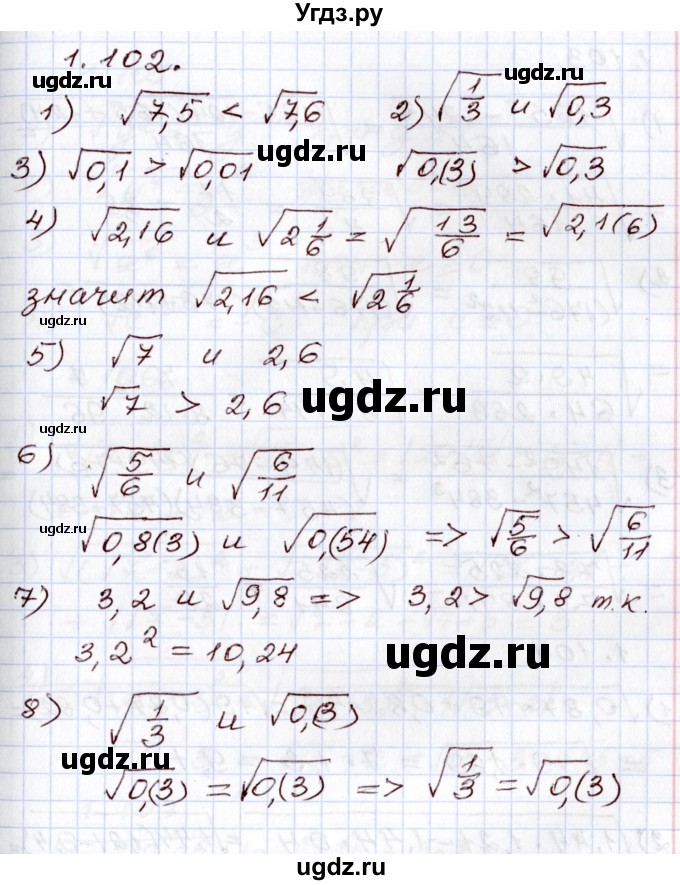 Угдз.ру
1.102.
ugdz.ru ugdz.ru
1) √7,5 < √7,6 2) √(1/3) и √0,3
ugdz.ru
3) √0,1 > √0,01 √0,(3) > √0,3
4) √2,16 и √(2 1/6) = √(13/6) = √2,1(6)
ugdz.ru
значит √2,16 < √(2 1/6)
ugdz.ru
5) √7 и 2,6
√7 > 2,6
ugdz.ru
ugdz.ru
6) √(5/6) и √(6/11)
ugdz.ru
√0,8(3) и √0,(54) => √(5/6) > √(6/11)
7) 3,2 и √9,8 => 3,2 > √9,8 т.к.
3,2² = 10,24
ugdz.ru
8) √(1/3) и √0,(3)
ugdz.ru
√0,(3) = √0,(3) => √(1/3) = √0,(3)
ugdz.ru
ugdz.ru